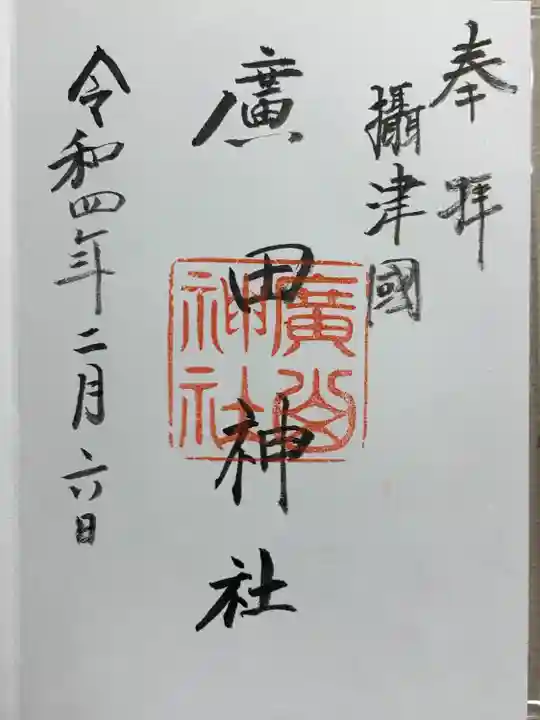 奉拝
攝津國
廣田神社
令和四年二月六日
廣田
神社